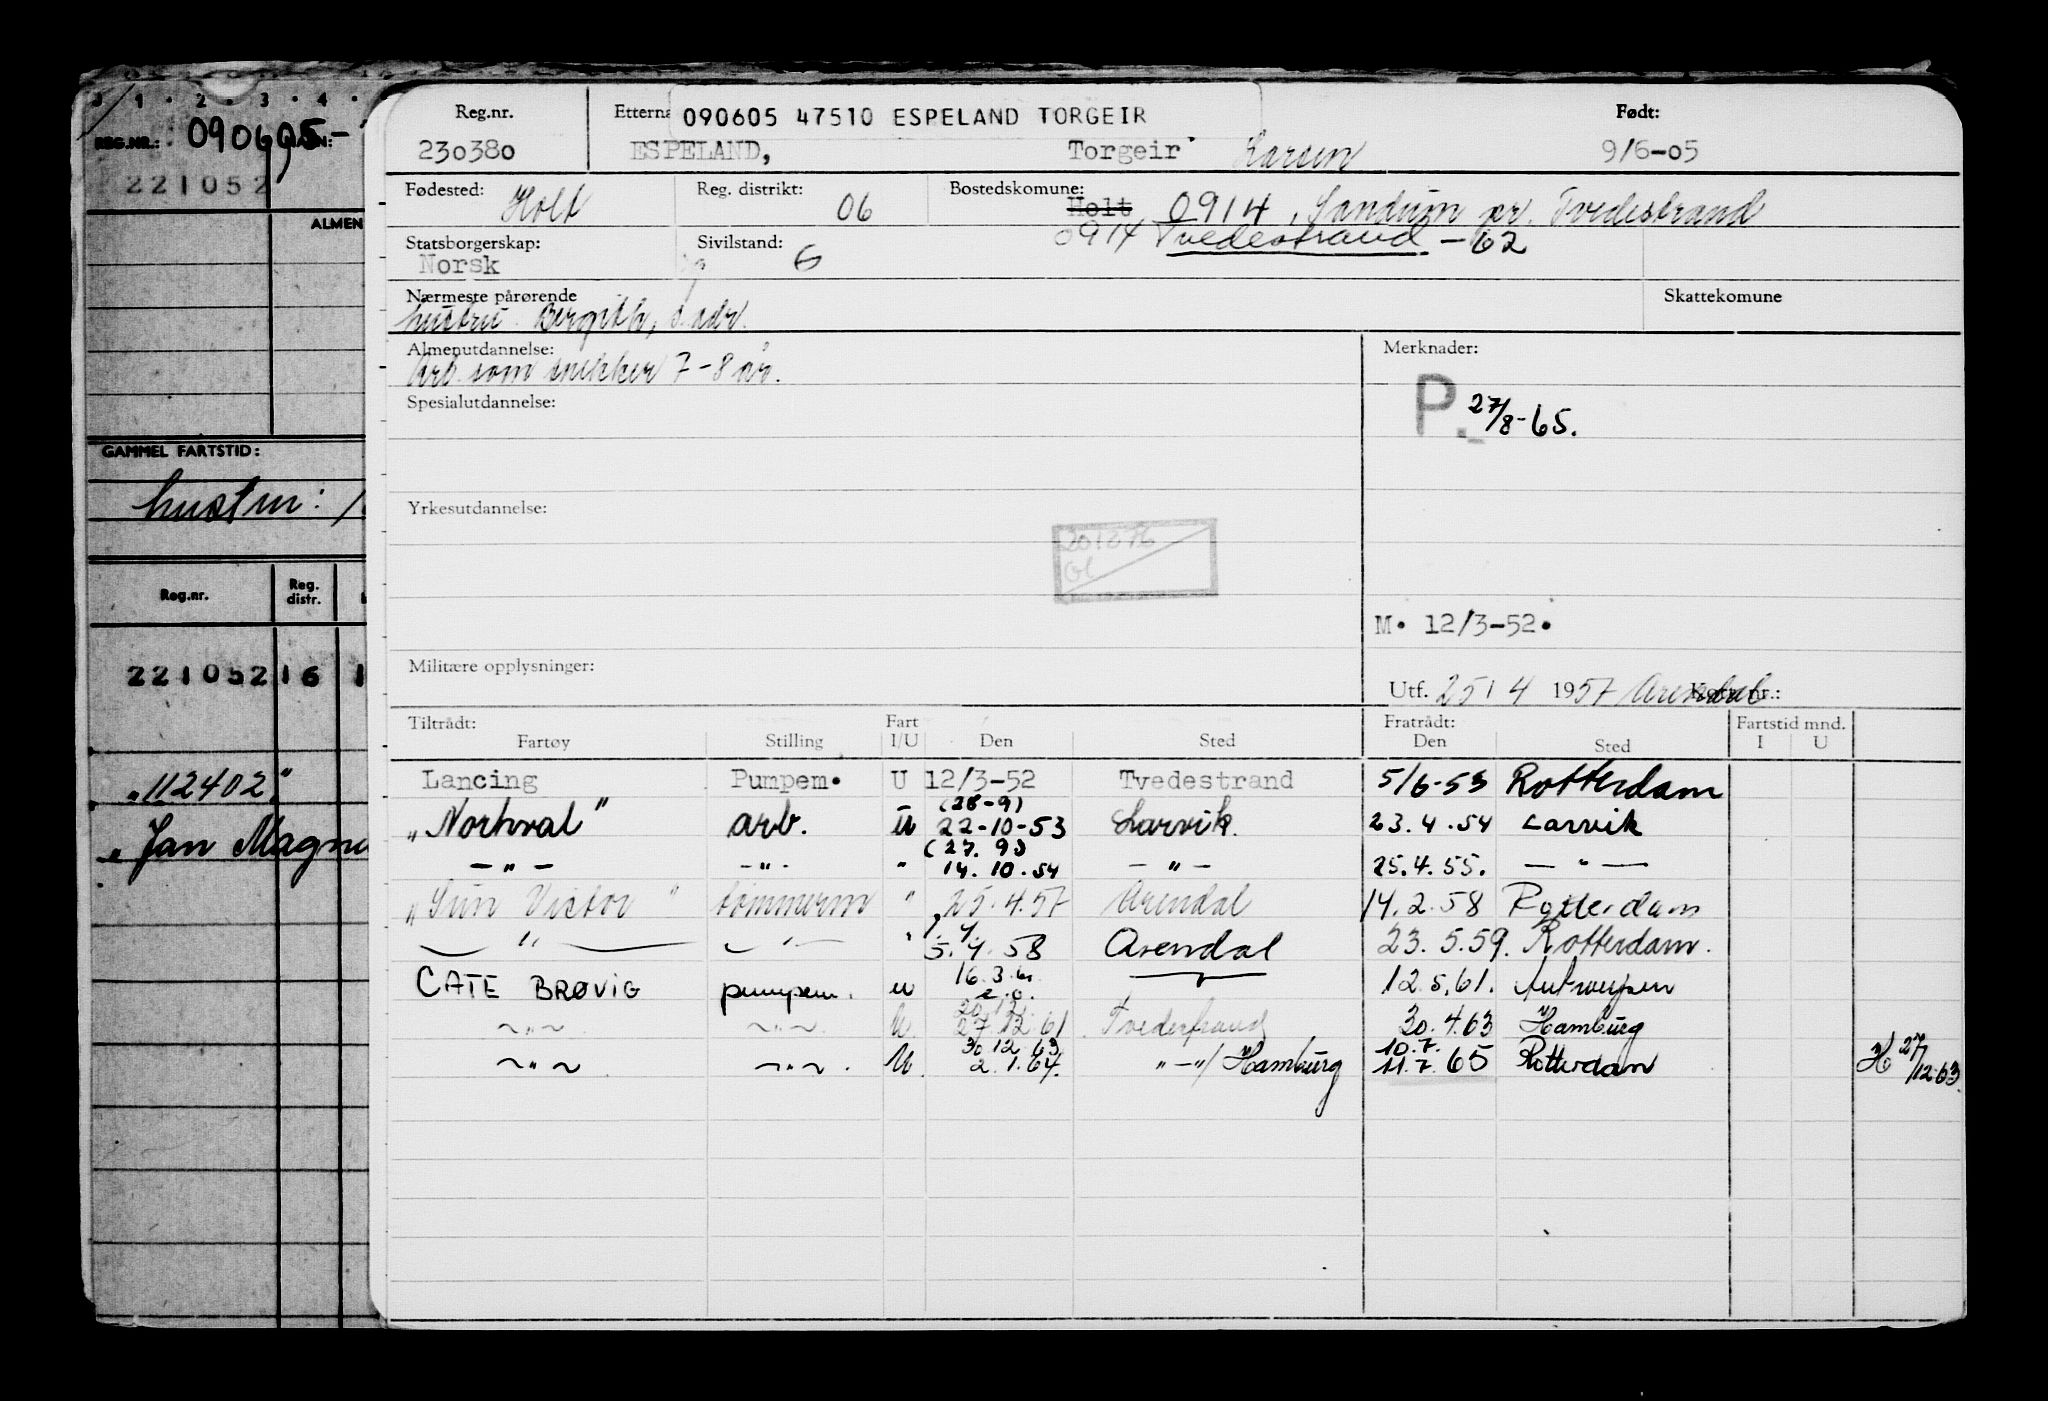 1 · 2 · 3 · 4 ·
REG.NR.: 090605-
221052
ALMEN
GAMMEL FARTSTID:
hustru:
Reg.nr. Reg. distr.
221052 16 1
"112402"
"Jan Magnu
Reg.nr. Etterna 090605 47510 ESPELAND TORGEIR Født:
230380 ESPELAND, Torgeir Larsen 9/6-05
Fødested: Holt Reg. distrikt: 06 Bostedskomune: Holt 0914, Sandum pr. Tvedestrand
Statsborgerskap: Norsk Sivilstand: G 0914 Tvedestrand -62
Nærmeste pårørende Skattekomune
hustru Bergith, s. adr.
Almenutdannelse: Merknader:
Arb. som snekker 7-8 år.
Spesialutdannelse: P. 27/8-65.
Yrkesutdannelse:
201076
Gl
M. 12/3-52.
Militære opplysninger: Utf. 25/4 1957 Arendal Kortn nr.:
Tiltrådt: Fart Fratrådt: Fartstid mnd.
Fartøy Stilling I/U Den Sted Den Sted I U
Lancing Pumpem. U 12/3-52 Tvedestrand 5/6-53 Rotterdam
(28-9)
"Norhval" arb. u 22-10-53 Larvik. 23.4.54 Larvik
(27.9)
— " — — " — " 14.10.54 — " — 25.4.55. — " —
"Sun Victor" tømmerm " 25.4.57 Arendal 14.2.58 Rotterdam
1.4.
— " — — " — " 5.4.58 Arendal 23.5.59. Rotterdam.
16.3.61
CATE BRØVIG pumpem. u 12.5.61. Antwerpen
20.12.
— " — — " — U. 27.12.61 Tvedestrand 30.4.63 Hamburg
30.12.63 10.7.
— " — — " — . U. 2.1.64. " — "/ Hamburg 11.7.65 Rotterdam H 27/12-63.